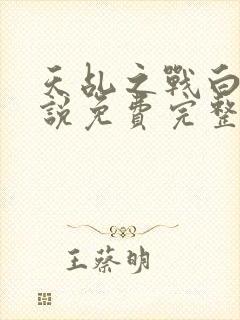 天乱之戰白
說免費完整
王蔡明